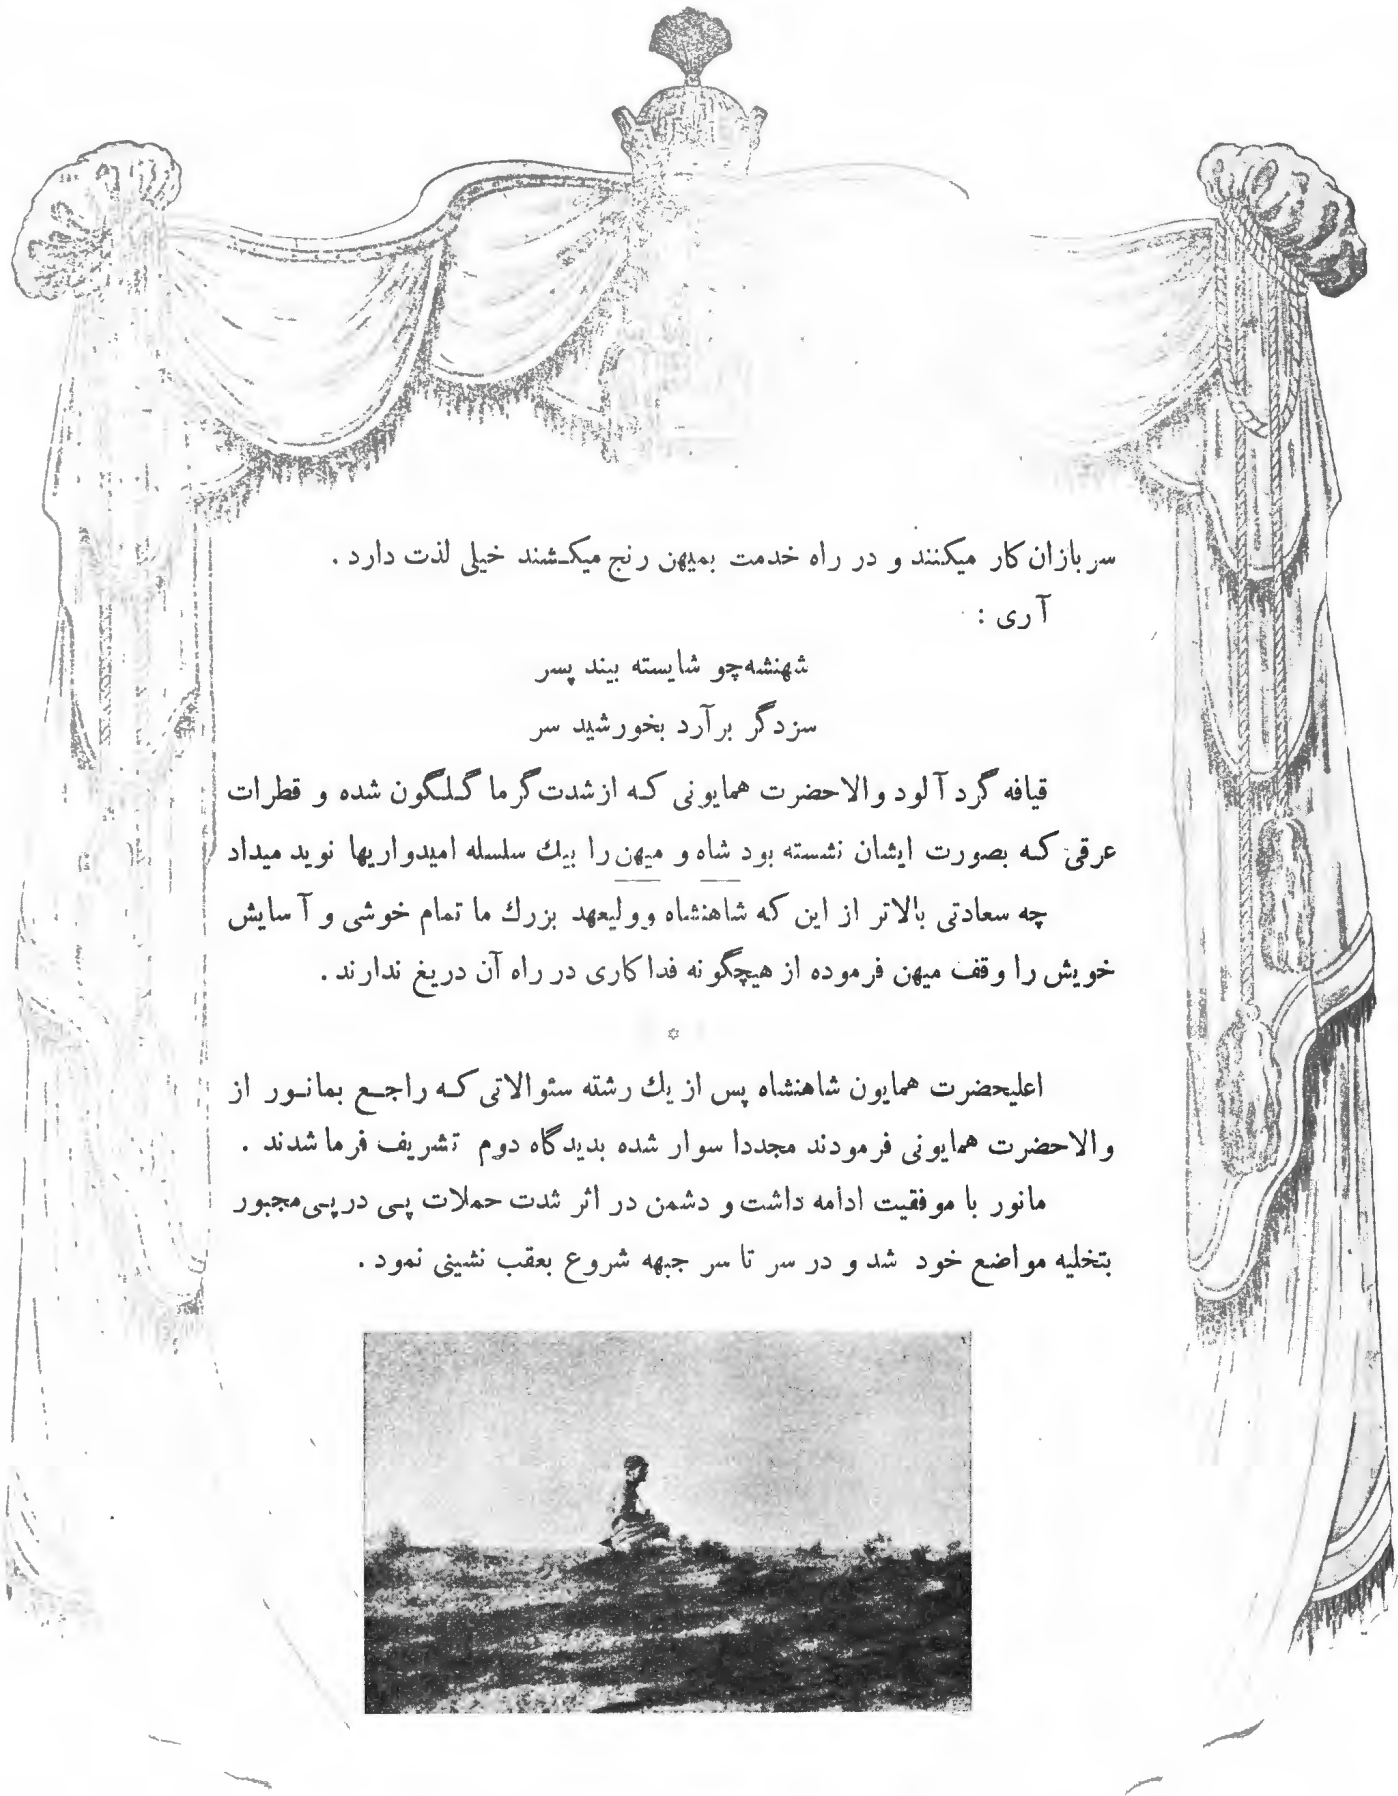 سربازان کار میکنند و در راه خدمت بمیهن رنج میکشند خیلی لذت دارد .
آری :
شهنشه چو شایسته بیند پسر
سزدگر برآرد بخورشید سر
قیافه گرد آلود والاحضرت همایونی که ازشدت گرما گلگون شده و قطرات
عرقی که بصورت ایشان نشسته بود شاه و میهن را بیك سلسله امیدواریها نوید میداد
چه سعادتی بالاتر از این که شاهنشاه وولیعهد بزرك ما تمام خوشی و آسایش
خویش را وقف میهن فرموده از هیچگونه فداکاری در راه آن دریغ ندارند .
✡
اعلیحضرت همایون شاهنشاه پس از یك رشته سئوالاتی که راجع بمانور از
والاحضرت همایونی فرمودند مجددا سوار شده بدیدگاه دوم تشریف فرما شدند .
مانور با موفقیت ادامه داشت و دشمن در اثر شدت حملات پی درپی مجبور
بتخلیه مواضع خود شد و در سر تا سر جبهه شروع بعقب نشینی نمود .